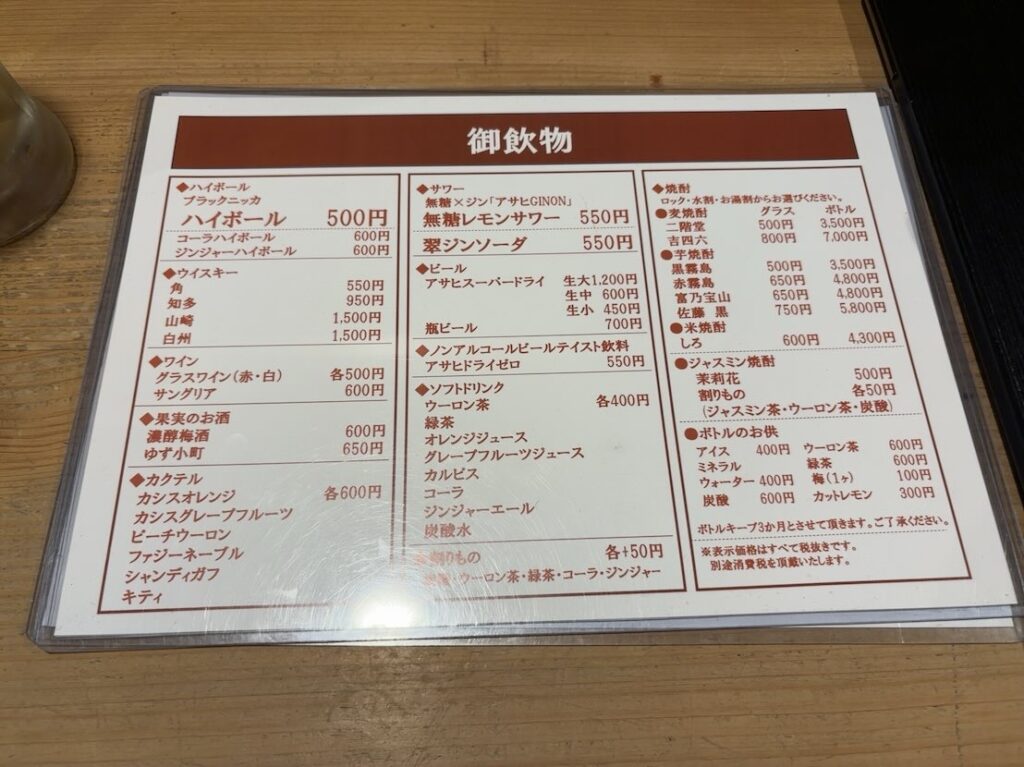 御飲物
◆ハイボール
ブラックニッカ
ハイボール 500円
コーラハイボール 600円
ジンジャーハイボール 600円
◆ウイスキー
角 550円
知多 950円
山崎 1,500円
白州 1,500円
◆ワイン
グラスワイン(赤・白) 各500円
サングリア 600円
◆果実のお酒
濃醇梅酒 600円
ゆず小町 650円
◆カクテル
カシスオレンジ 各600円
カシスグレープフルーツ
ピーチウーロン
ファジーネーブル
シャンディガフ
キティ
◆サワー
無糖×ジン「アサヒGINON」
無糖レモンサワー 550円
翠ジンソーダ 550円
◆ビール
アサヒスーパードライ 生大1,200円
生中 600円
生小 450円
瓶ビール 700円
◆ノンアルコールビールテイスト飲料
アサヒドライゼロ 550円
◆ソフトドリンク
ウーロン茶 各400円
緑茶
オレンジジュース
グレープフルーツジュース
カルピス
コーラ
ジンジャーエール
炭酸水
割りもの 各+50円
・ウーロン茶・緑茶・コーラ・ジンジャー
◆焼酎
ロック・水割・お湯割からお選びください。
●麦焼酎 グラス ボトル
二階堂 500円 3,500円
吉四六 800円 7,000円
●芋焼酎
黒霧島 500円 3,500円
赤霧島 650円 4,800円
富乃宝山 650円 4,800円
佐藤 黒 750円 5,800円
●米焼酎
しろ 600円 4,300円
●ジャスミン焼酎
茉莉花 500円
割りもの 各50円
(ジャスミン茶・ウーロン茶・炭酸)
●ボトルのお供
アイス 400円 ウーロン茶 600円
ミネラル 緑茶 600円
ウォーター 400円 梅(1ヶ) 100円
炭酸 600円 カットレモン 300円
ボトルキープ3か月とさせて頂きます。ご了承ください。
※表示価格はすべて税抜きです。
別途消費税を頂戴いたします。